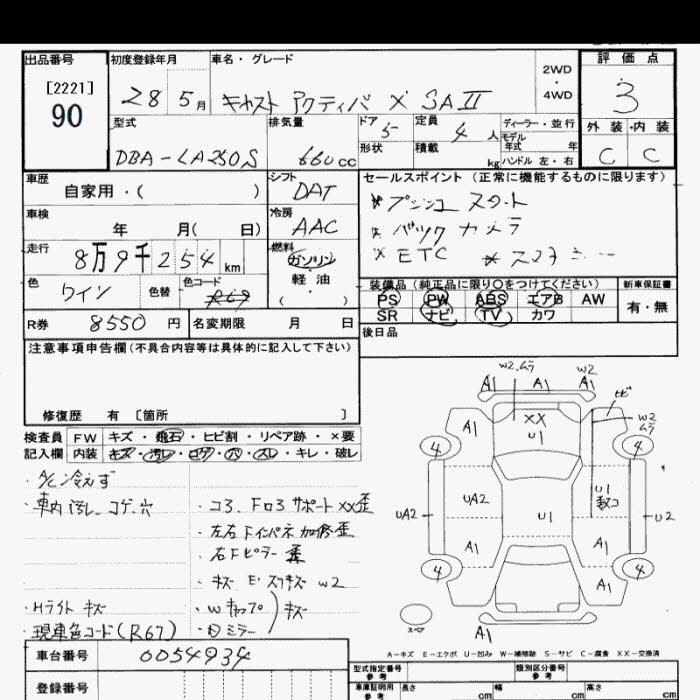 出品番号
[2221]
90
初度登録年月
28 5月
車名・グレード
キャスト アクティバ X SAⅡ
2WD
・
4WD
評価点
3
外装・内装
C C
型式
DBA-LA250S
排気量
660cc
ドア
5
形状
定員
4人
積載
kg
ディーラー・並行
モデル
年式 年
ハンドル 左・右
車歴
自家用・( )
シフト
DAT
車検
年 月( 日)
冷房
AAC
走行
8万9千254km
燃料
ガソリン
・
軽油
・
( )
色
ワイン
色替
色コード
R69
R券
8550円
名変期限 月 日
セールスポイント (正常に機能するものに限ります)
* プッシュ スタート
* バックカメラ
* ETC
装備品 (純正品に限り○をつけてください)
PS PW ABS エアB AW
SR ナビ TV カワ
新車保証書
有・無
後日品
注意事項申告欄(不具合内容等は具体的に記入して下さい)
修復歴 有 〔箇所 〕
検査員
記入欄
FW キズ・飛石・ヒビ割・リペア跡・×要
内装 キズ・汚レ・コゲ・穴・スレ・キレ・破レ
・A/C 冷えず
・車内汚レ、コゲ、穴
・コ3、Fロ3 サポート XX歪
・左右Fインパネ 加修歪
・右Fピラー 歪
・Hライト キズ
・現車色コード(R67)
W2.ムラ
A1
A1
W2
A1
XX
U1
ヒビ
W2
ムラ
A1
4
4
UA2
UA2
U1
U1
数コ
U2
A1
A1
4
4
A1
A1
スペア
A-キズ E-エクボ U-凹み W-補修跡 S-サビ C-腐食 XX-交換済
車台番号
0054934
登録番号
型式指定番号
参考
類別区分番号
参考
車庫証明用
参考
長さ cm
幅 cm
高さ cm